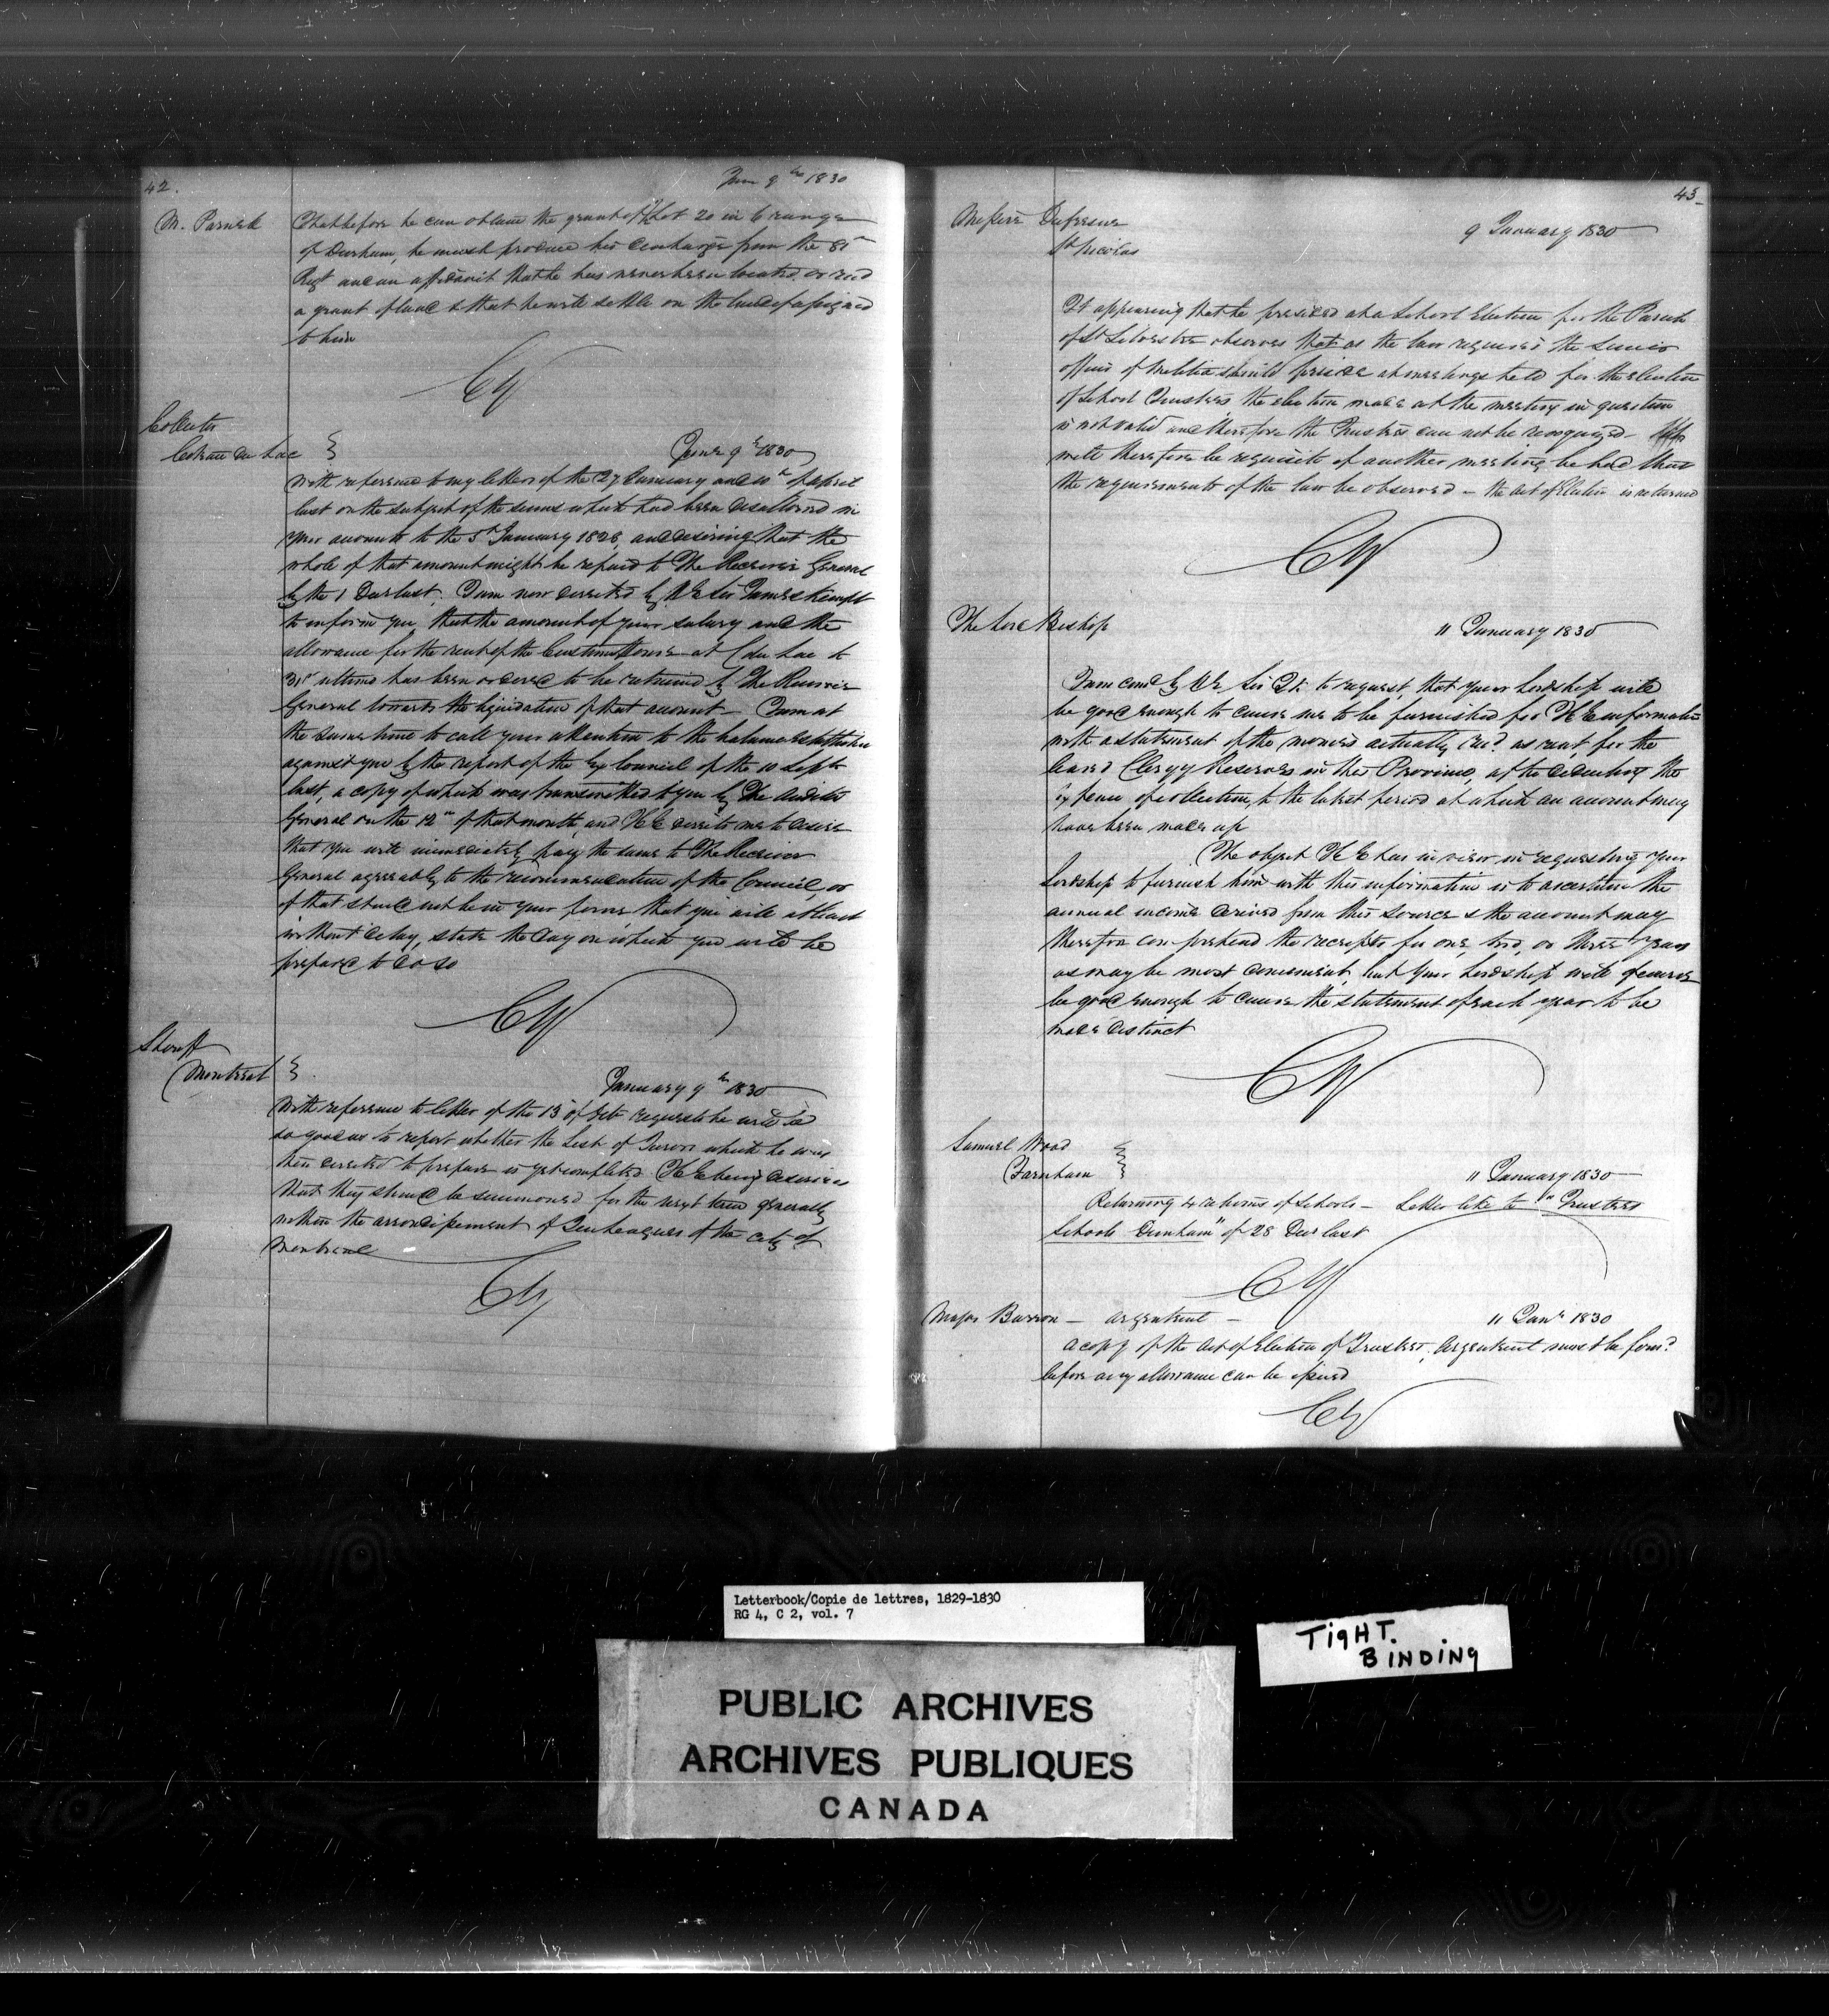 42.
Jan 9th 1830
M. Parnell
That before he can obtain the grant of Lot 20 in 6 range
of Durham, he must produce his discharge from the 81st
Regt and an affidavit that he has never been located or recd
a grant of land & that he will settle on the land if assigned
to him
CY
Collector
Coteau du Lac
Jany 9th 1830
With reference to my letters of the 27 January and 10th of April
last on the subject of the sums which had been disallowed in
your accounts to the 5th January 1828, and desiring that the
whole of that amount might be repaid to The Receiver General
by the 1 Decr last, I am now directed by H E Sir James Kempt
to inform you, that the amount of your salary and the
allowance for the rent of the Custom House at C du Lac to
31st ultimo has been ordered to be retained by The Receiver
General towards the liquidation of that amount — I am at
the same time to call your attention to the balance
against you by the report of the Ex Council of the 10 Sept
last, a copy of which was transmitted to you by The Auditor
General on the 12th of that month, and H E directs me to desire
that you will immediately pay the same to The Receiver
General agreeably to the recommendation of the Council, or
if that should not be in your power that you will at least
without delay, state the day on which you will be
prepared to do so
CY
Sheriff
Montreal
January 9th 1830
With reference to letter of the 13 of requests he will be
so good as to report whether the List of Jurors which he was
then directed to prepare is yet completed. H E being desirous
that they should be summoned for the next term generally
within the of the city of
Montreal
CY
43
Messire Dufresne
St Nicolas
9 January 1830
It appearing that he presided at a School Election for the Parish
of St Silvestre observes that as the law requires the Senior
officer of Militia should preside at meetings held for the election
of School Trustees the election made at the meeting in question
is not valid and therefore the Trustees can not be recognized —
will therefore be requisite if another meeting be held that
the requirements of the law be observed — the Act of Election is returned
CY
The Lord Bishop
11 January 1830
I am comd by H E Sir J K. to request, that your Lordship will
be good enough to cause me to be furnished for H E information
with a statement of the monies actually recd as rent, for the
leased Clergy Reserves in this Province, after deducting the
expence of collection, to the latest period at which an account may
have been made up
The object H E has in view in requesting your
Lordship to furnish him with this information is to ascertain the
annual income derived from this source & the account may
therefore comprehend the receipts for one, two, or three years
as may be most convenient, but your Lordship will of course
be good enough to cause the statement of each year to be
made distinct
CY
Samuel Wood
Farnham
11 January 1830
Returning 4 returns of Schools — Letter like to "Trustees
Schools Dunham" of 28 Decr last
CY
Major Barron — Argenteuil —
11 Jany 1830
A copy of the Act of Election of Trustees, Argenteuil must be forwd
before any allowance can be issued
CY
Letterbook/Copie de lettres, 1829-1830
RG 4, C 2, vol. 7
TIGHT.
BINDING
PUBLIC ARCHIVES
ARCHIVES PUBLIQUES
CANADA